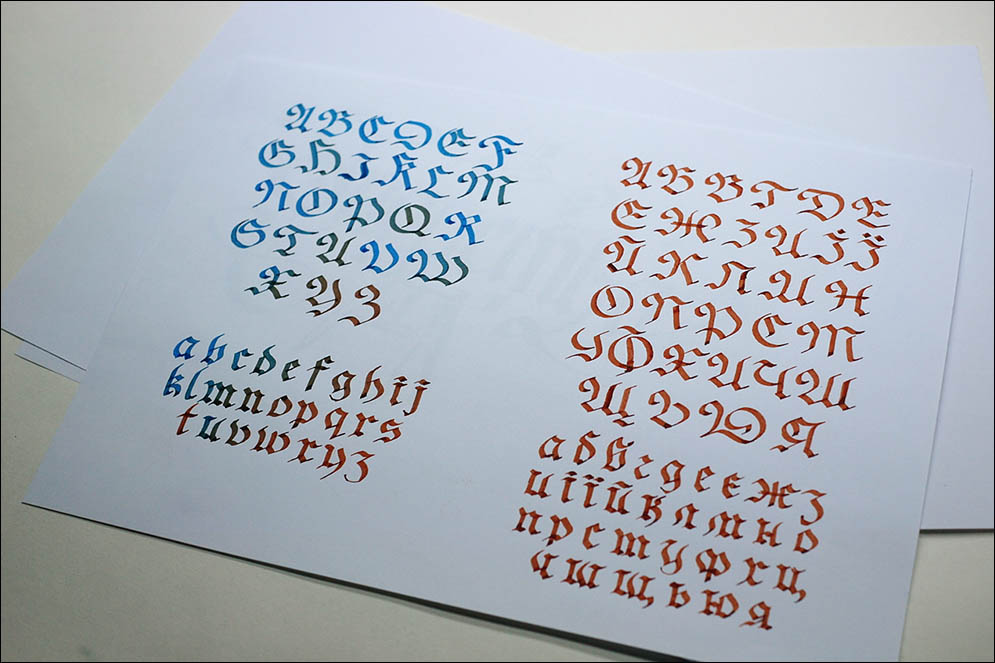 A B C D E F
G H I K L M
N O P Q R
S T U V W
X Y Z
a b c d e f g h i j
k l m n o p q r s
t u v w x y z
А Б В Г Д Е
Є Ж З И І Ї
Й К Л М Н
О П Р С Т
У Ф Х Ц Ч Ш
Щ Ь Ю Я
а б в г д е є ж з
и і ї й к л м н о
п р с т у ф х ц
ч ш щ ь ю я